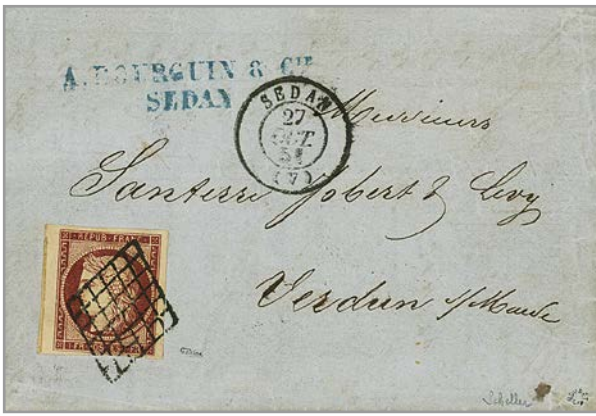 A. BOURGUIN & CIE
SEDAN
SEDAN
27
OCT
51
(7)
Messieurs
Santerre Jobert & Levy
Verdun s/Meuse
REPUB. FRANC.
Scheller